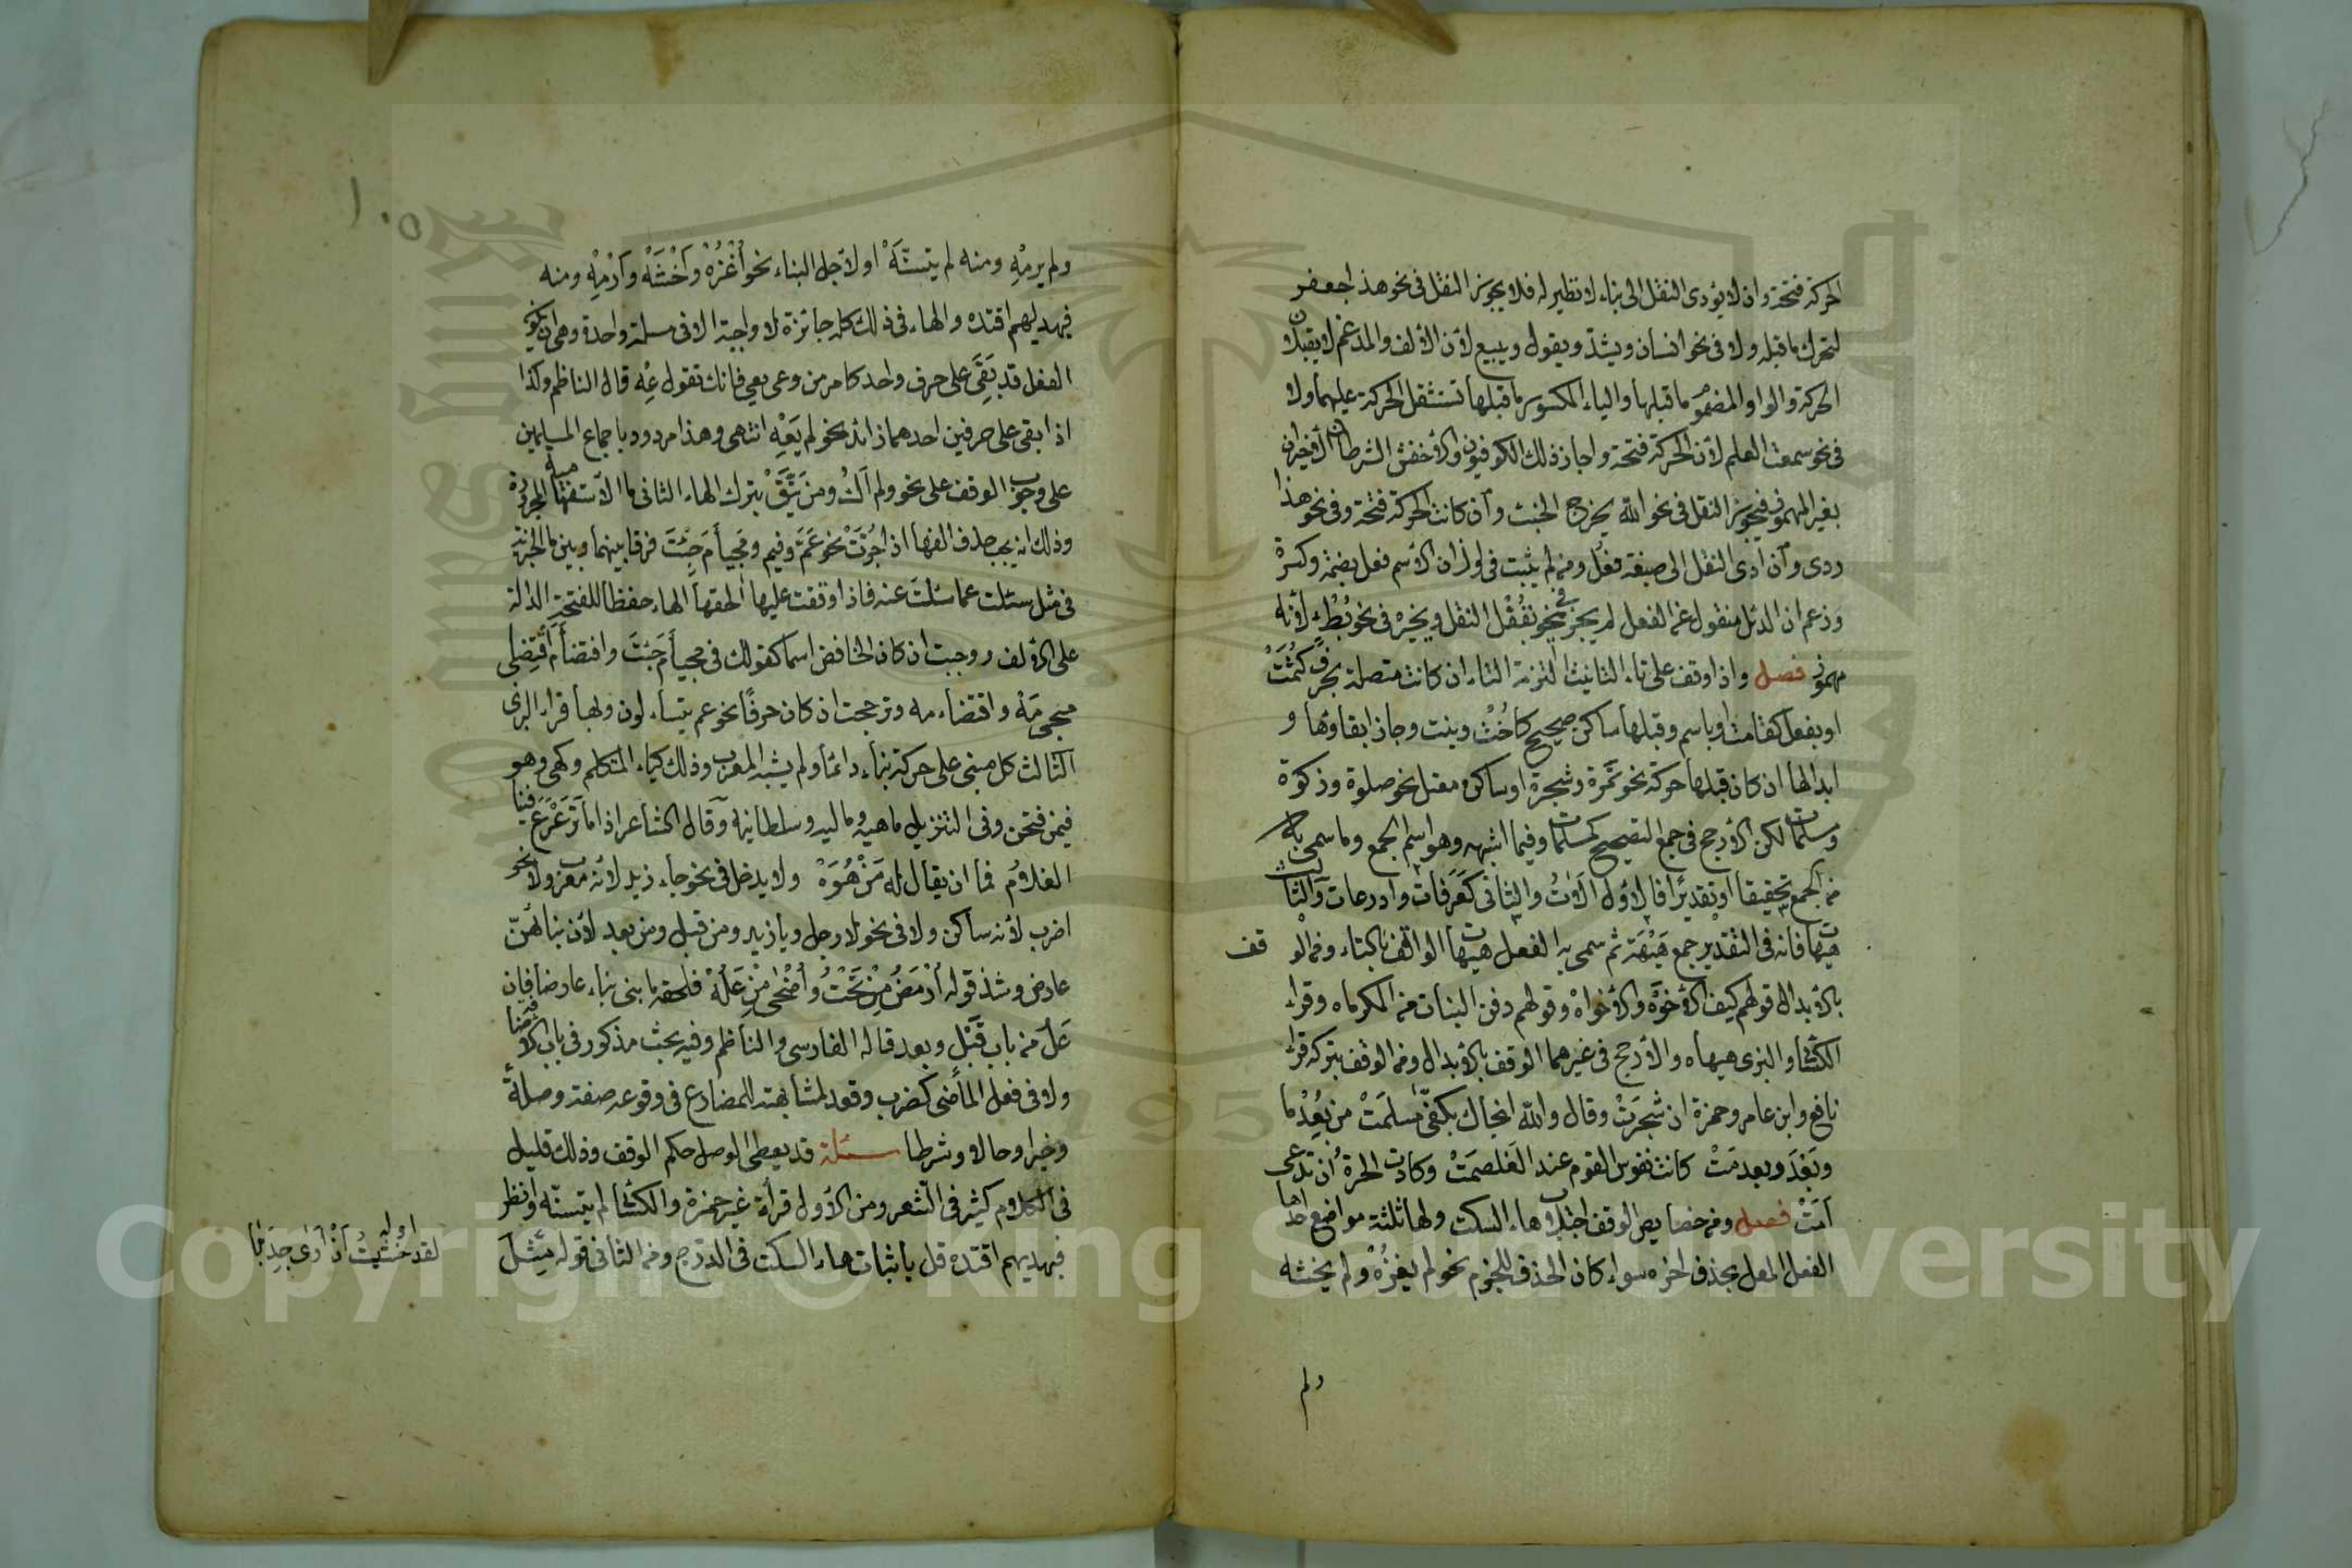 الحركة فتحة وان لا يؤدى النقل الى بناء لا نظير له فلا يجوز النقل فى نحو هذا جعفر
لتحرك ما قبله ولا فى نحو انسان ويشدّ ويقول ويبيع لأن الألف والمدغم لا يقبلان
الحركة والواو المضموم ما قبلها والياء المكسور ما قبلها تستثقل الحركة عليهما ولا
فى نحو سمعت العلم لأن الحركة فتحة واجاز ذلك الكوفيون والأخفش الشرطان الأخيران
بغير المهموز فيجوز النقل فى نحو الله يخرج الخبث وان كانت الحركة فتحة وفى نحو هذا
ردى وان أدى النقل الى صيغة فعل ومن لم يثبت فى اوزان الأسم فعل بضمة وكسرة
وزعم ان الدئل منقول عن الفعل لم يجز فى نحو بقفل النقل ويجيزه فى نحو بطء لأنه
مهموز فصل واذا وقف على تاء التانيث التزمت التاء ان كانت متصلة بحرف كثمت
او بفعل كقامت او باسم وقبلها ساكن صحيح كاخت وبنت وجاز ابقاؤها و
ابدالها ان كان قبلها حركة نحو تمرة وشجرة او ساكن معتل نحو صلوة وزكوة
ومسلمات لكن الأرجح فى جمع التصحيح كمسلمات وفيما اشبهه وهو اسم الجمع وما سمى به
من الجمع تحقيقا او تقديرا فالاول الاولات والثانى كعرفات واذرعات والثالث
هيهات فانه فى التقدير جمع هيهة ثم سمى به الفعل هيهات الوقف بالتاء ومن الو قف
بالأبدال قولهم كيف الأخوه والأخواه وقولهم دفن البنات من المكرماه وقراء
الكسائى والبزى هيهاه والأرجح فى غيرهما الوقف بالأبدال ومن الوقف بتركه قراءة
نافع وابن عامر وحمزة ان شجرت وقال والله انجاك بكفى مسلمت من بعد ما
وبعد وبعدمت كانت نفوس القوم عند الغلصمت وكادت الحرة ان تدعى
امت فصل ومن خصايص الوقف اجتلاب هاء السكت ولها ثلثة مواضع احدها
الفعل المعل بحذف اخره سواء كان الحذف للجزم نحو لم يغزه ولم يخشه
ولم
١٠٥
ولم يرمه ومنه لم يتسنه او لأجل البناء نحو اغزه واخشه وارمه ومنه
فبهديهم اقتده والهاء فى ذلك كله جائزة لا واجبة الا فى مسئلة واحدة وهى ان يكون
الفعل قد بقى على حرف واحد كامر من وعى يعى فانك تقول عه قال الناظم وكذا
اذا بقى على حرفين احدهما زائد نحو لم يعه انتهى وهذا مردود باجماع المسلمين
على وجوب الوقف على نحو ولم اك ومن تق بترك الهاء الثانى ما الأستفهامية المجرورة
وذلك انه يجب حذف الفها اذا جرت نحو عم وفيم ومجىء م جئت فرقا بينها وبين ما الخبرية
فى مثل سئلت عما سئلت عنه فاذا وقفت عليها الحقتها الهاء حفظا للفتحة الدالة
على الألف ووجبت ان كان الخافض اسما كقولك فى مجىء م جئت واقتضاء م اقتضى
مجىء مه واقتضاء مه وترجحت ان كان حرفا نحو عم يتساءلون وبها قراء البزى
الثالث كل مبنى على حركة بناء دائما ولم يشبه المعرب وذلك كياء المتكلم وكهى وهو
فيمن فتحن وفى التنزيل ماهيه وماليه وسلطانيه وقال الشاعر اذا ما ترعرع فينا
الغلام فما ان يقال له من هوه ولا يدخل فى نحو جاء زيد لأنه معرب ولا نحو
اضرب لأنه ساكن ولا فى نحو لا رجل ويا زيد ومن قبل ومن بعد لأن بنائهن
عارض وشذ قوله ارمض من تحت واضحى من عله فلحقه ما بنى بناء عارضا فان
عل من باب قبل وبعد قاله الفارسى والناظم وفيه بحث مذكور فى باب الأضافة
ولا فى فعل الماضى كضرب وقعد لمشابهته المضارع فى وقوعه صفة وصلة
وخبرا وحالا وشرطا مسئلة قد يعطى الوصل حكم الوقف وذلك قليل
فى الكلام كثير فى الشعر ومن الأول قرأة غير حمزة والكسائى لم يتسنه وانظر
فبهديهم اقتده قل باثبات هاء السكت فى الدرج ومن الثانى قوله مثل
اوله
لقد خشيت ان ارى جدبا
Copyright © King Saud University